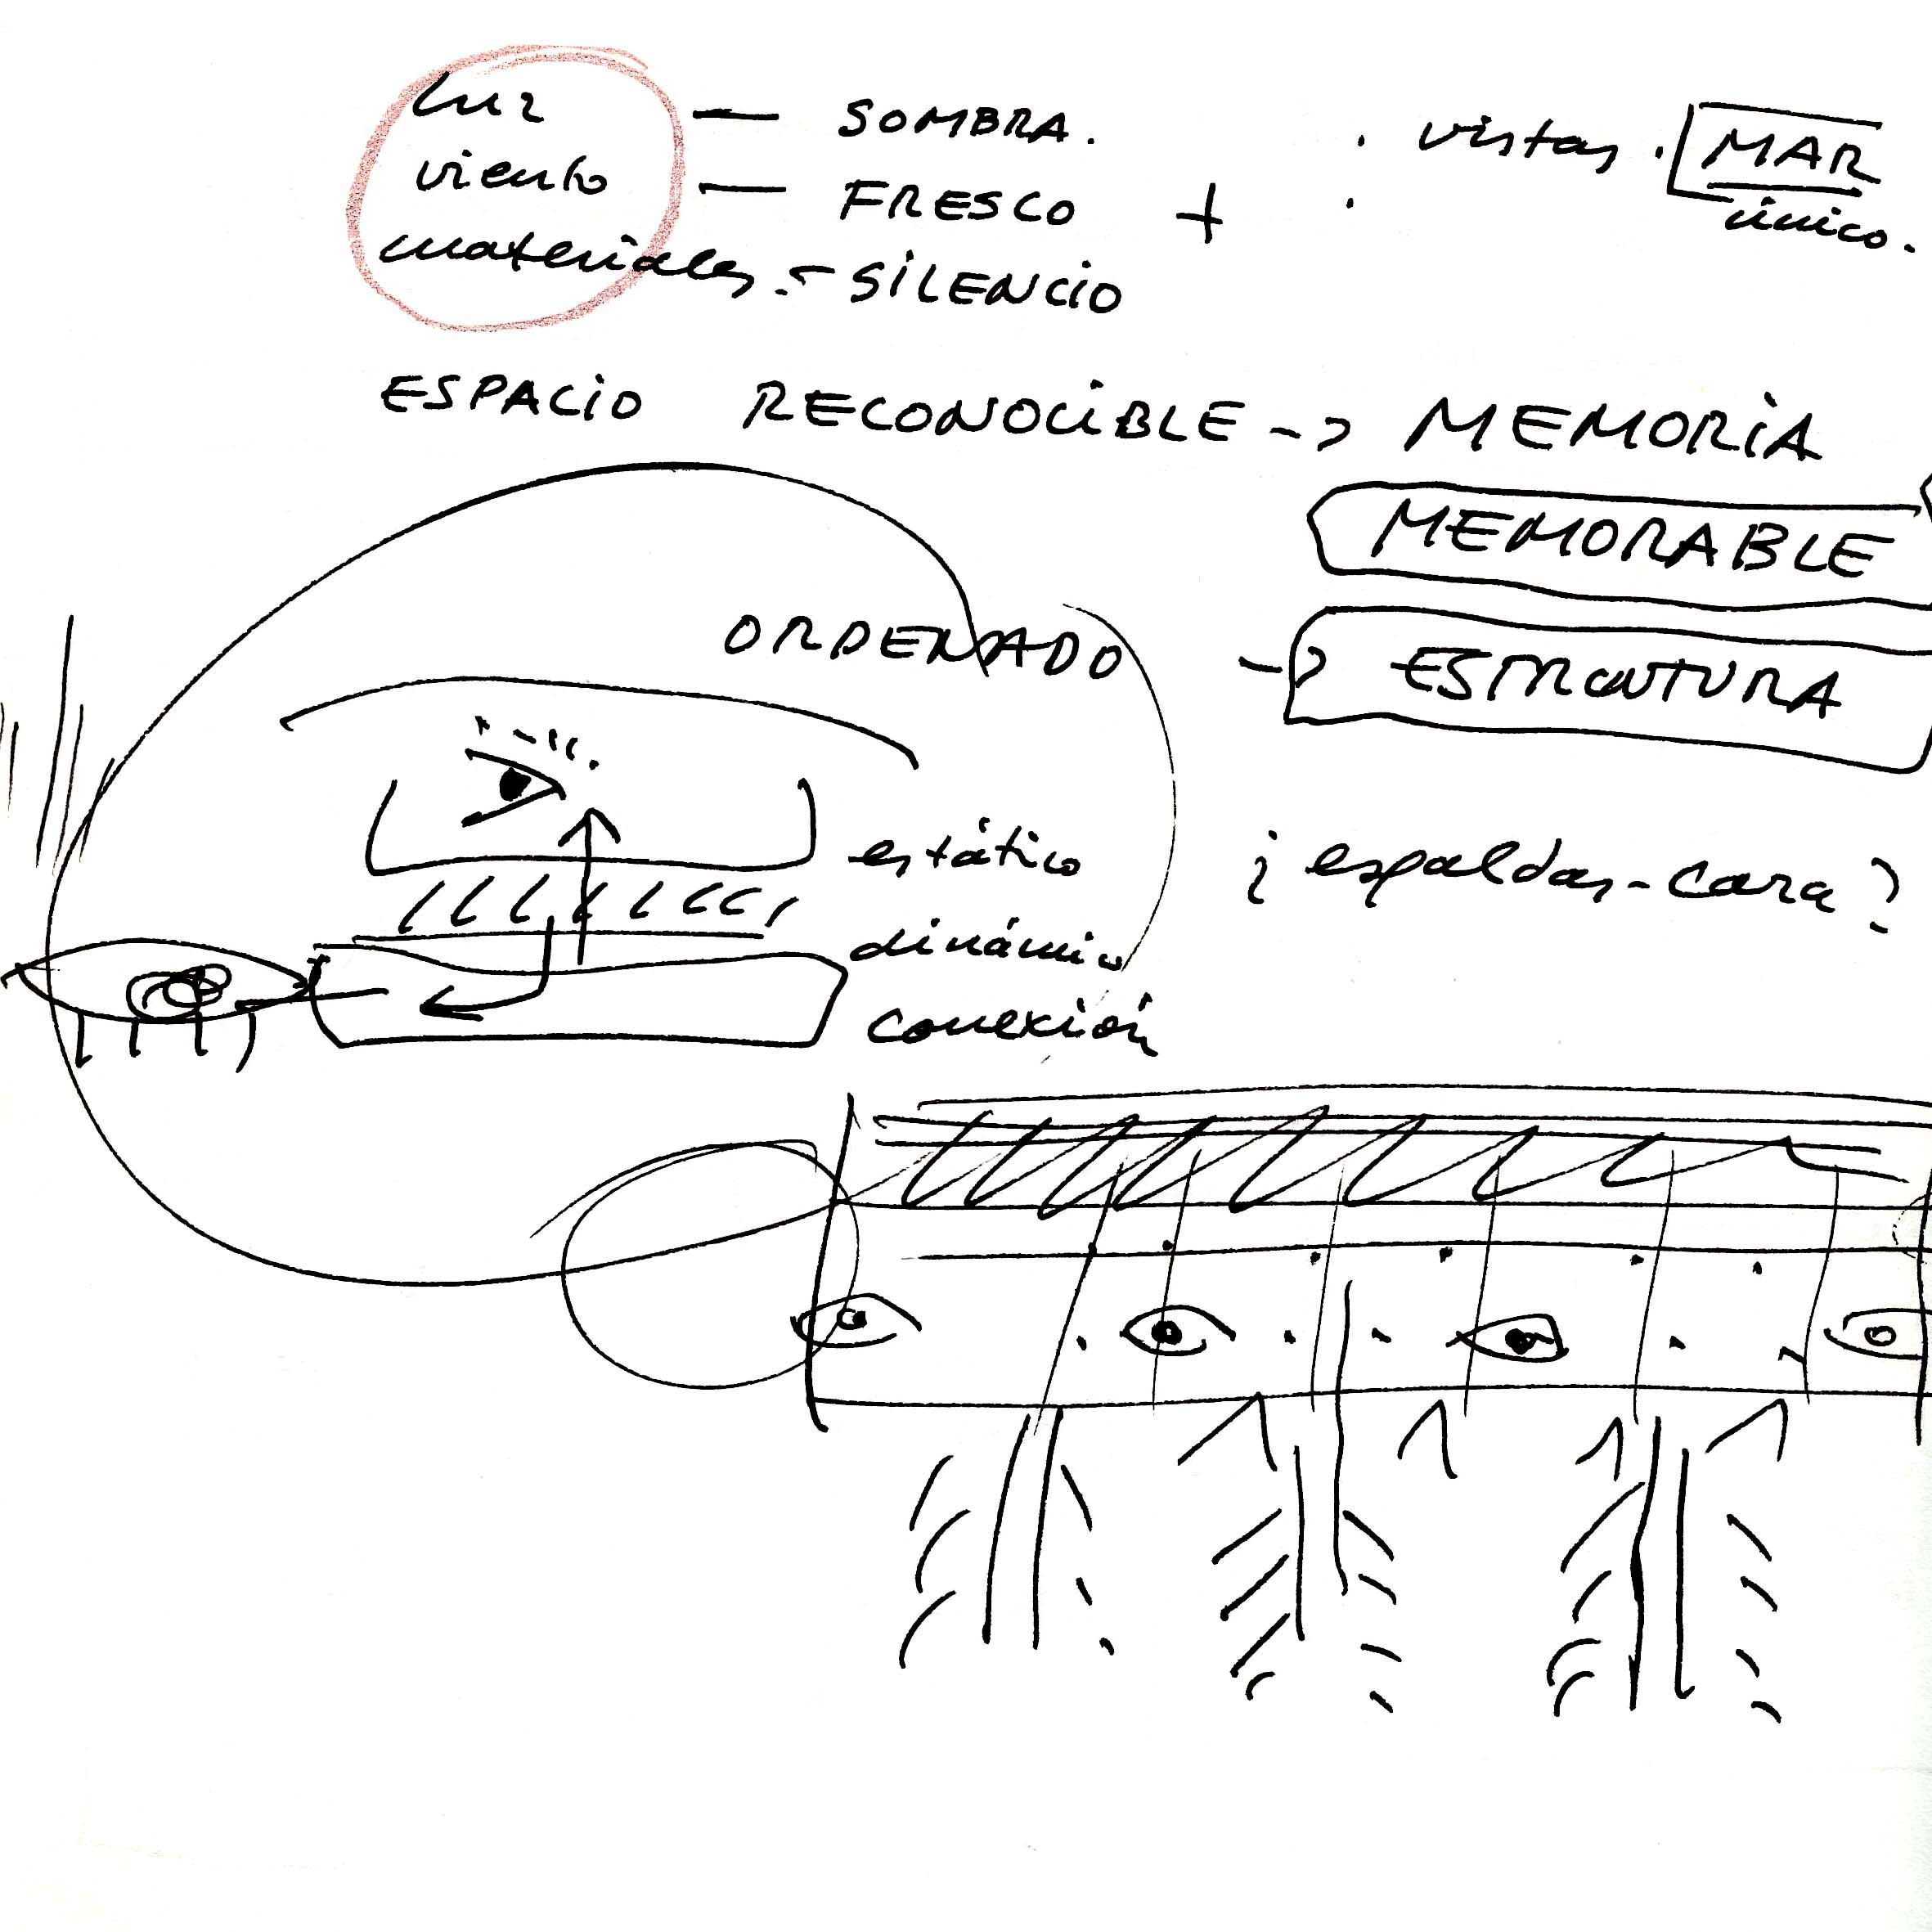 luz — SOMBRA. . vistas. MAR
viento — FRESCO + . único.
materiales. - SILENCIO
ESPACIO RECONOCIBLE -> MEMORIA
MEMORABLE
ORDENADO -> ESTRUCTURA
estático
¿espaldas-cara?
dinámico
conexión